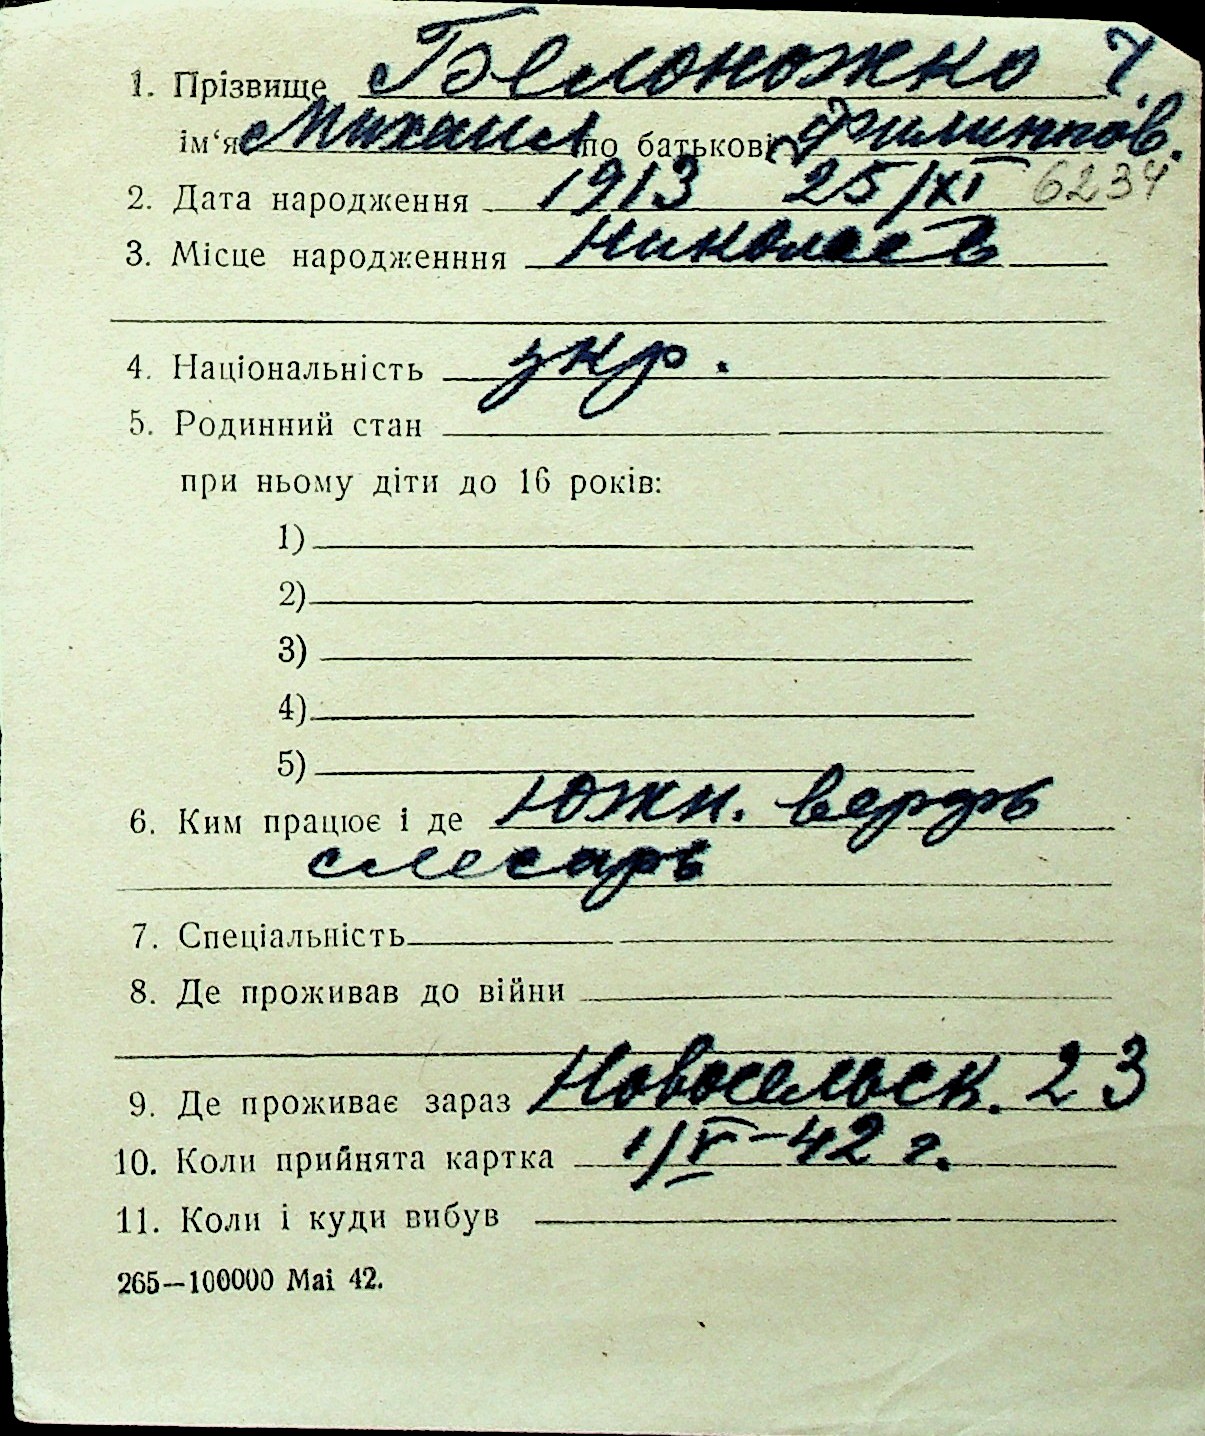 1. Прізвище Белоножко 7.
ім‘я Михаил по батькові Филиппов.
2. Дата народження 1913 25/XI 6234
3. Місце народженння Николаев
4. Національність укр.
5. Родинний стан
при ньому діти до 16 років:
1)
2)
3)
4)
5)
6. Ким працює і де Южн. верфь
слесарь
7. Спеціальність
8. Де проживав до війни
9. Де проживає зараз Новосельск. 23
10. Коли прийнята картка 1/V-42 г.
11. Коли і куди вибув
265—100000 Mai 42.